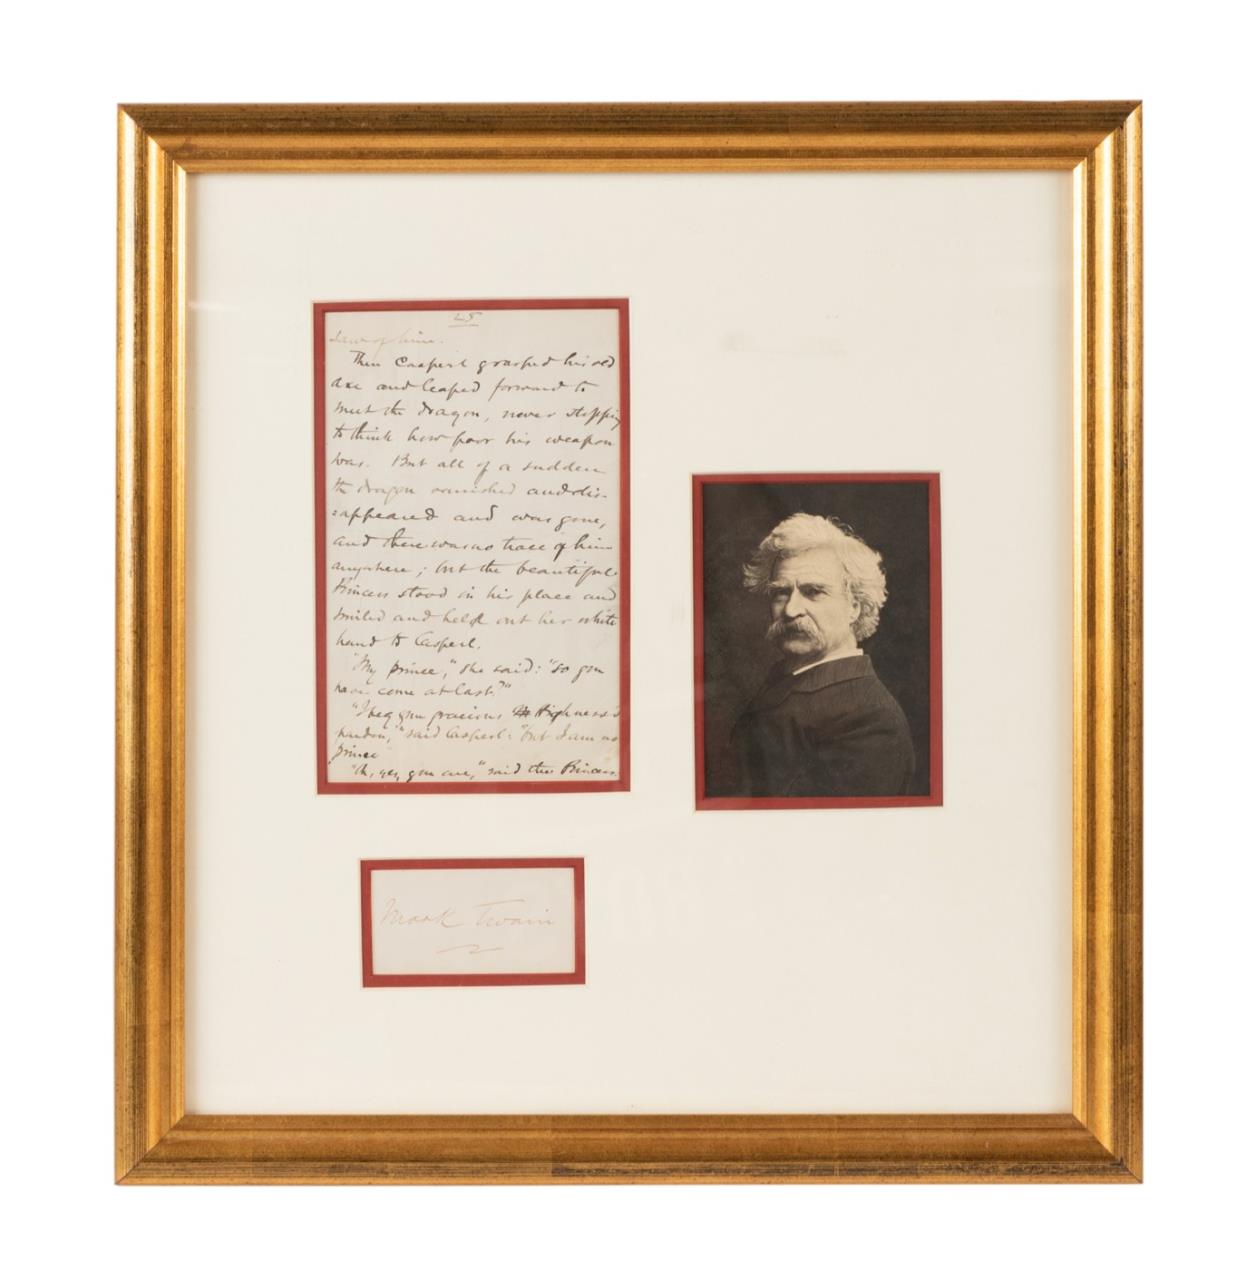 25
saw of him.
Then Casperl grasped his old
axe and leaped forward to
meet the dragon, never stopping
to think how poor his weapon
was. But all of a sudden
the dragon vanished and dis-
=appeared and was gone,
and there was no trace of him
anywhere; but the beautiful
Princess stood in his place and
smiled and held out her white
hand to Casperl.
"My prince," she said: "so you
have come at last."
"I beg your gracious Highness's
pardon," said Casperl: "but I am no
prince"
"Oh, yes, you are," said the Princess:
Mark Twain